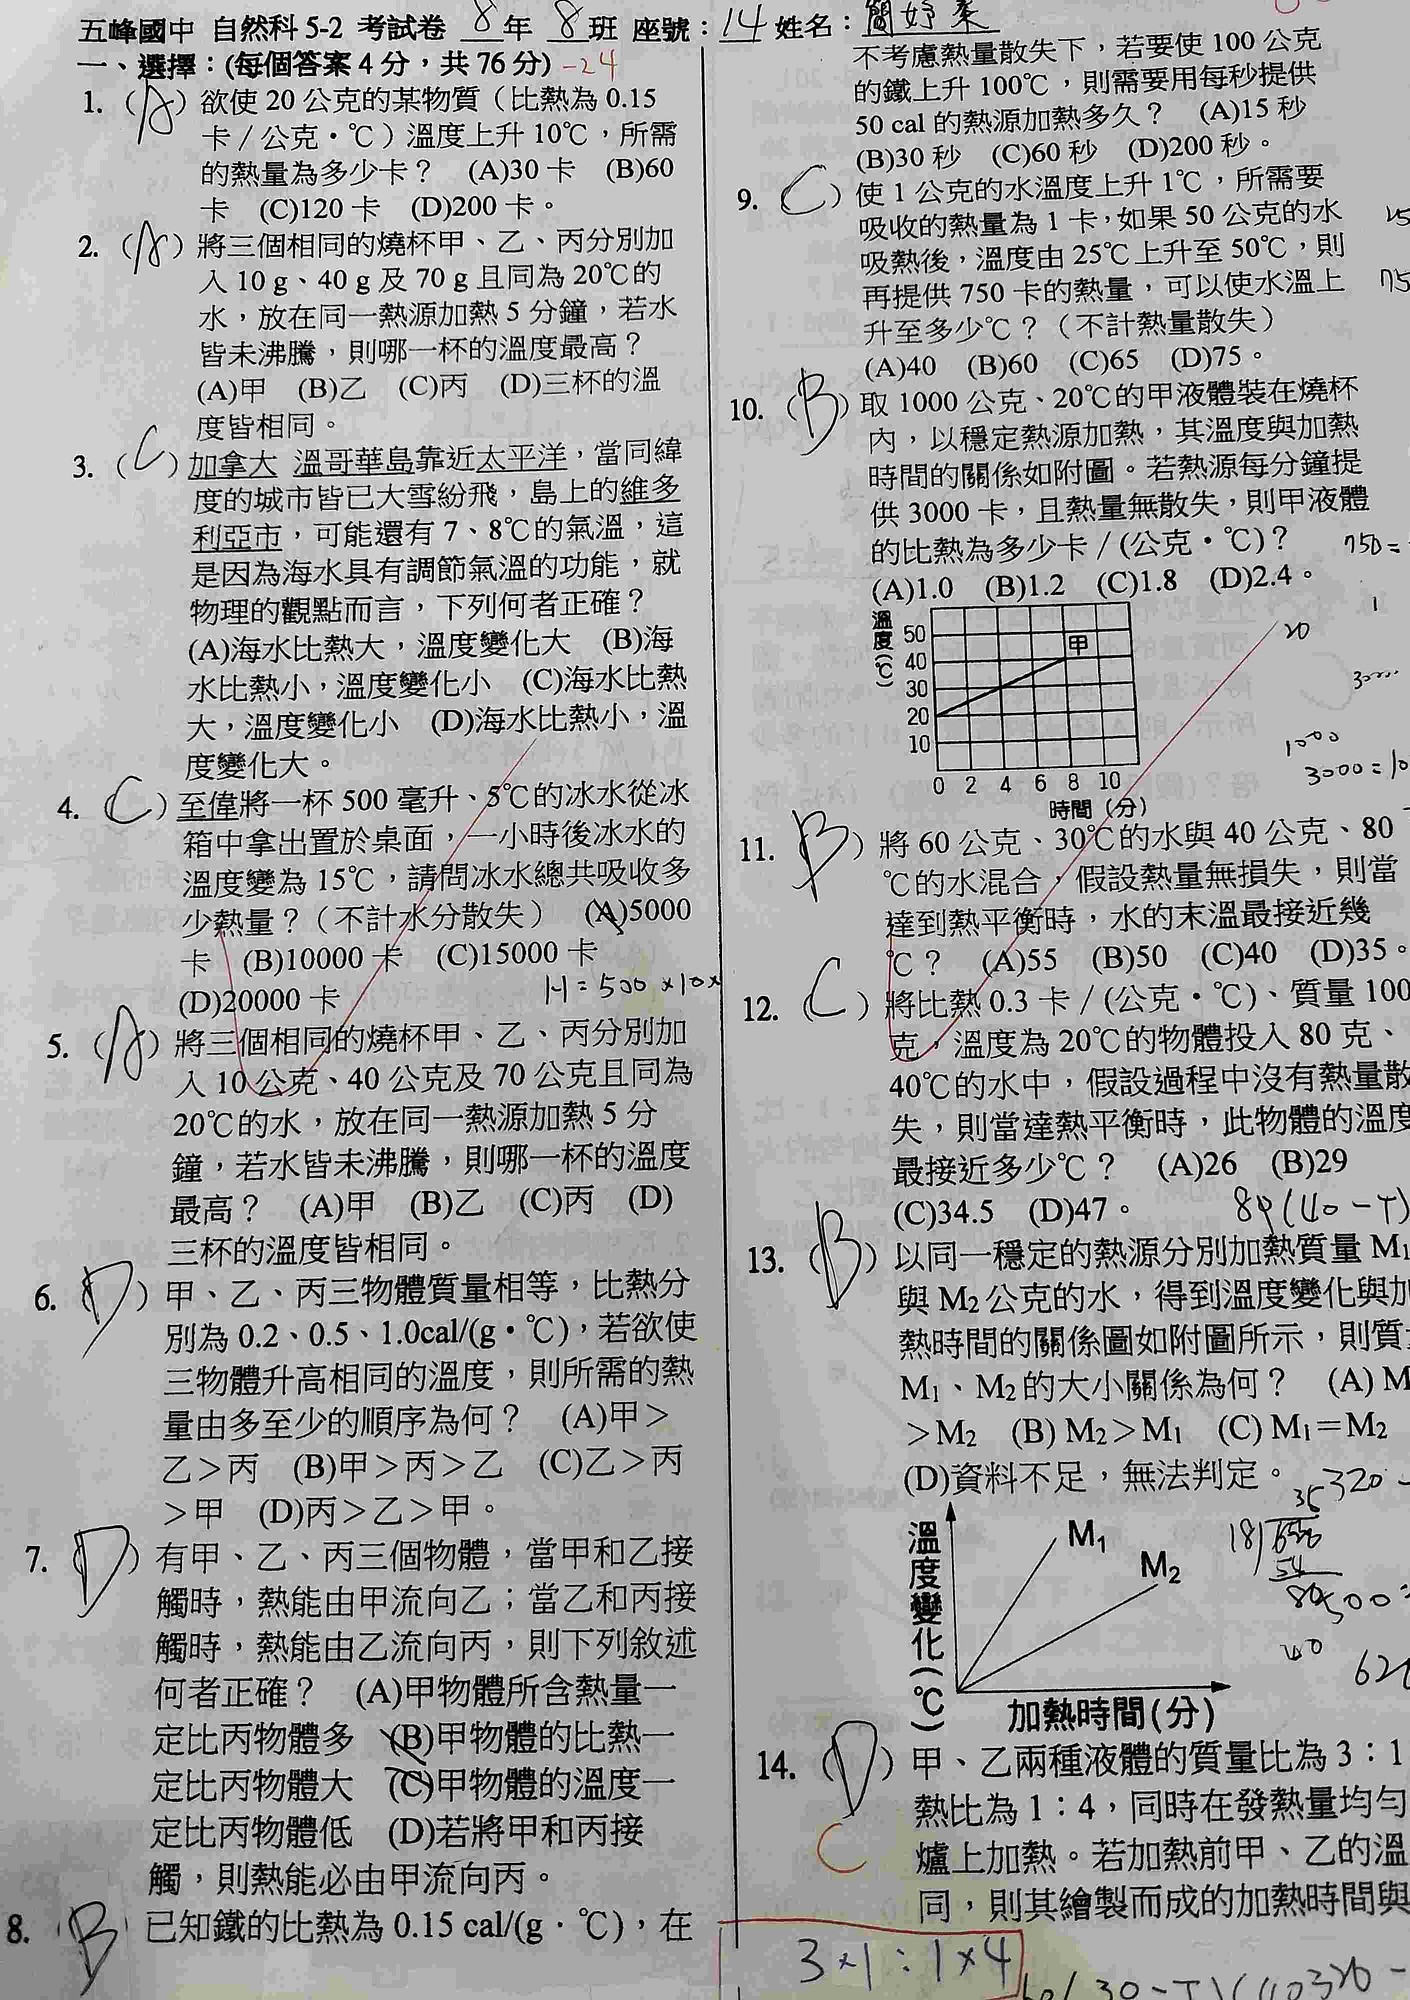 五峰國中 自然科 5-2 考試卷 8 年 8 班 座號：14 姓名：簡妤
一、選擇：(每個答案 4 分，共 76 分) -24
1. (A) 欲使 20 公克的某物質（比熱為 0.15
卡／公克・℃）溫度上升 10℃，所需
的熱量為多少卡？ (A)30 卡 (B)60
卡 (C)120 卡 (D)200 卡。
2. (A) 將三個相同的燒杯甲、乙、丙分別加
入 10 g、40 g 及 70 g 且同為 20℃的
水，放在同一熱源加熱 5 分鐘，若水
皆未沸騰，則哪一杯的溫度最高？
(A)甲 (B)乙 (C)丙 (D)三杯的溫
度皆相同。
3. (C) 加拿大 溫哥華島靠近太平洋，當同緯
度的城市皆已大雪紛飛，島上的維多
利亞市，可能還有 7、8℃的氣溫，這
是因為海水具有調節氣溫的功能，就
物理的觀點而言，下列何者正確？
(A)海水比熱大，溫度變化大 (B)海
水比熱小，溫度變化小 (C)海水比熱
大，溫度變化小 (D)海水比熱小，溫
度變化大。
4. (C) 至偉將一杯 500 毫升、5℃的冰水從冰
箱中拿出置於桌面，一小時後冰水的
溫度變為 15℃，請問冰水總共吸收多
少熱量？（不計水分散失） (A)5000
卡 (B)10000 卡 (C)15000 卡
(D)20000 卡 H=500×10×
5. (A) 將三個相同的燒杯甲、乙、丙分別加
入 10 公克、40 公克及 70 公克且同為
20℃的水，放在同一熱源加熱 5 分
鐘，若水皆未沸騰，則哪一杯的溫度
最高？ (A)甲 (B)乙 (C)丙 (D)
三杯的溫度皆相同。
6. (D) 甲、乙、丙三物體質量相等，比熱分
別為 0.2、0.5、1.0cal/(g・℃)，若欲使
三物體升高相同的溫度，則所需的熱
量由多至少的順序為何？ (A)甲＞
乙＞丙 (B)甲＞丙＞乙 (C)乙＞丙
＞甲 (D)丙＞乙＞甲。
7. (D) 有甲、乙、丙三個物體，當甲和乙接
觸時，熱能由甲流向乙；當乙和丙接
觸時，熱能由乙流向丙，則下列敘述
何者正確？ (A)甲物體所含熱量一
定比丙物體多 (B)甲物體的比熱一
定比丙物體大 (C)甲物體的溫度一
定比丙物體低 (D)若將甲和丙接
觸，則熱能必由甲流向丙。
8. (B) 已知鐵的比熱為 0.15 cal/(g．℃)，在
不考慮熱量散失下，若要使 100 公克
的鐵上升 100℃，則需要用每秒提供
50 cal 的熱源加熱多久？ (A)15 秒
(B)30 秒 (C)60 秒 (D)200 秒。
9. (C) 使 1 公克的水溫度上升 1℃，所需要
吸收的熱量為 1 卡，如果 50 公克的水
吸熱後，溫度由 25℃上升至 50℃，則
再提供 750 卡的熱量，可以使水溫上
升至多少℃？（不計熱量散失）
(A)40 (B)60 (C)65 (D)75。
10. (B) 取 1000 公克、20℃的甲液體裝在燒杯
內，以穩定熱源加熱，其溫度與加熱
時間的關係如附圖。若熱源每分鐘提
供 3000 卡，且熱量無散失，則甲液體
的比熱為多少卡／(公克・℃)？ 750=
(A)1.0 (B)1.2 (C)1.8 (D)2.4。
溫度(℃)
50
甲
40
30
20
10
0 2 4 6 8 10
時間（分）
20
1000
3000=10
11. (B) 將 60 公克、30℃的水與 40 公克、80
℃的水混合，假設熱量無損失，則當
達到熱平衡時，水的末溫最接近幾
℃？ (A)55 (B)50 (C)40 (D)35。
12. (C) 將比熱 0.3 卡／(公克・℃)、質量 100
克，溫度為 20℃的物體投入 80 克、
40℃的水中，假設過程中沒有熱量散
失，則當達熱平衡時，此物體的溫度
最接近多少℃？ (A)26 (B)29
(C)34.5 (D)47。 80(40-T)
13. (B) 以同一穩定的熱源分別加熱質量 M1
與 M2 公克的水，得到溫度變化與加
熱時間的關係圖如附圖所示，則質
M1、M2 的大小關係為何？ (A) M
＞M2 (B) M2＞M1 (C) M1＝M2
(D)資料不足，無法判定。
溫度變化(℃)
M1
M2
加熱時間(分)
14. (D) 甲、乙兩種液體的質量比為 3：1
C
熱比為 1：4，同時在發熱量均勻
爐上加熱。若加熱前甲、乙的溫
同，則其繪製而成的加熱時間與
3×1：1×4